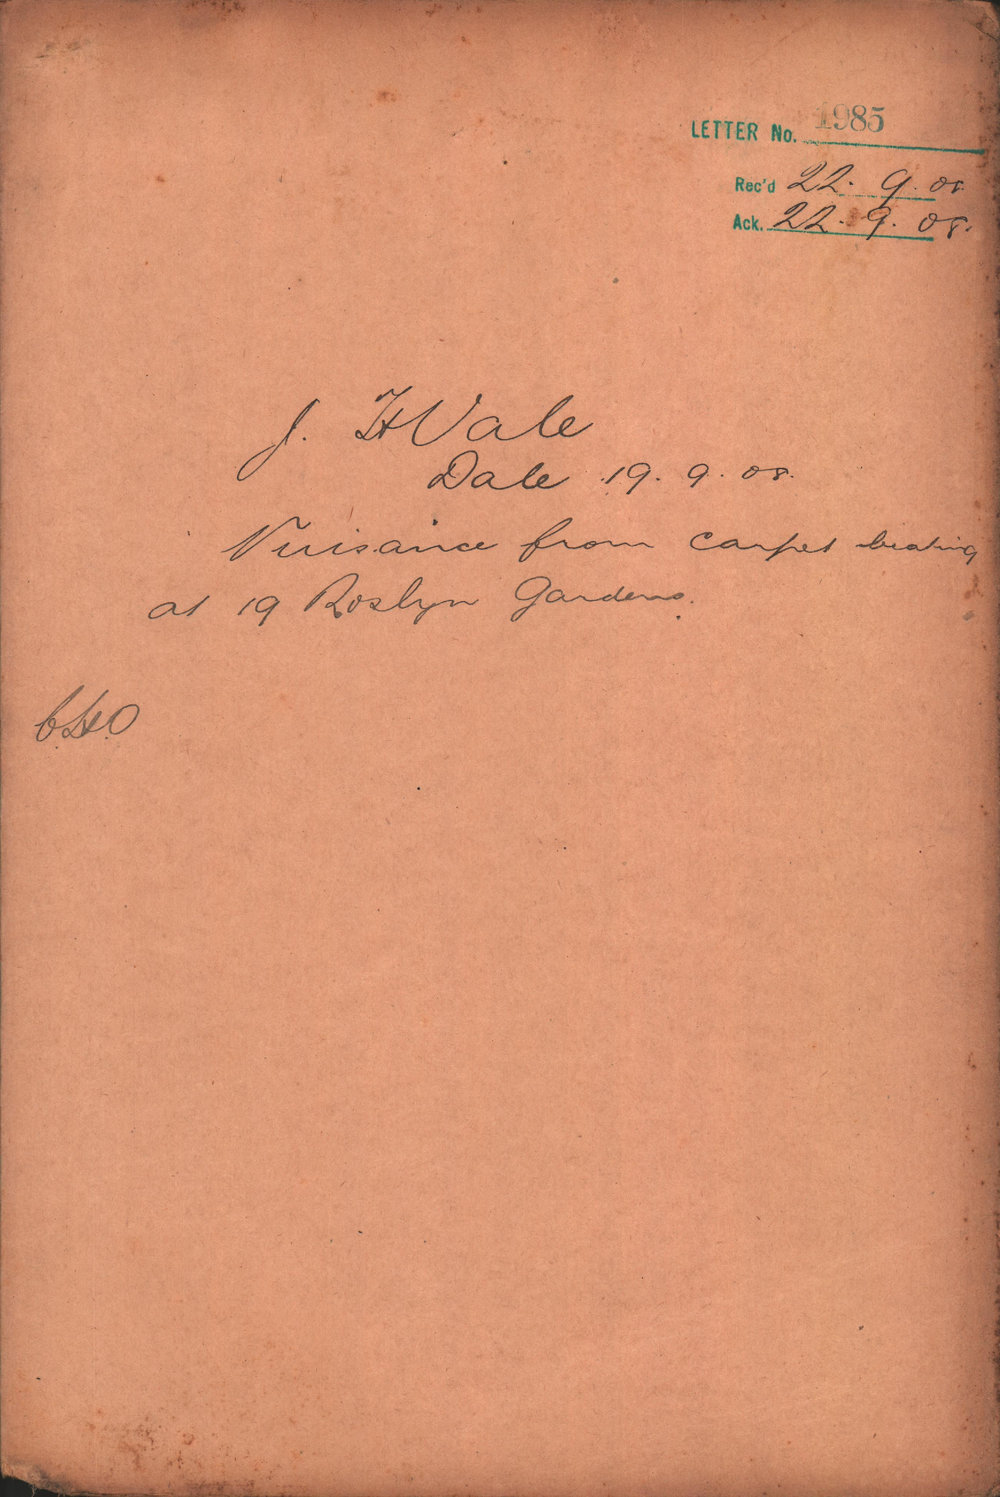 LETTER No. 1985
Rec'd 22. 9. 08
Ack. 22. 9. 08.
J. H Vale
Date 19. 9. 08.
Nuisance from carpet beating
at 19 Roslyn Gardens.
C.H.O